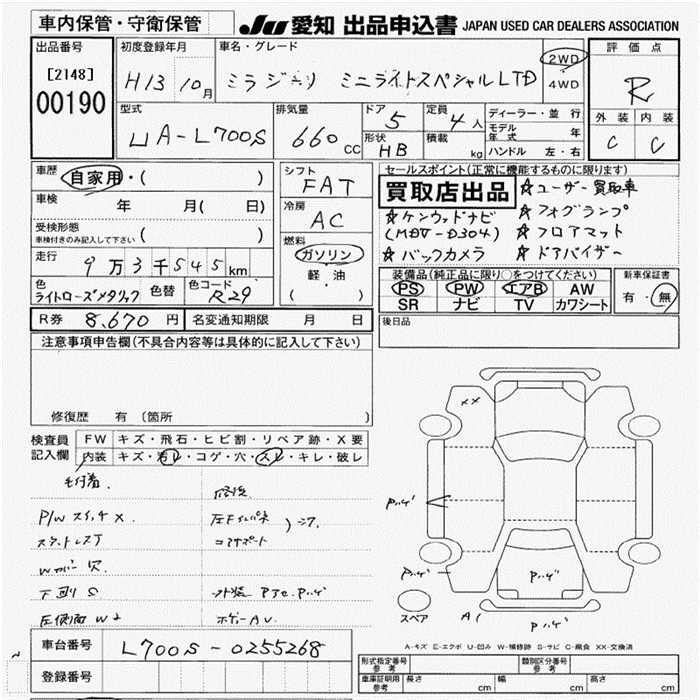 車内保管・守衛保管
JU 愛知 出品申込書 JAPAN USED CAR DEALERS ASSOCIATION
出品番号
[2148]
00190
初度登録年月
H13 10月
車名・グレード
ミラジーノ ミニライトスペシャルLTD
2WD
4WD
評価点
R
外装 内装
C C
型式
UA-L700S
排気量
660 CC
ドア
5
形状
HB
定員
4人
積載
kg
ディーラー・並行
モデル年式 年
ハンドル 左・右
車歴
自家用・( )
車検
年 月( 日)
受検形態
車検付きのみ記入して下さい ( )
走行
9万3千545km
色
ライトローズメタリック
色替
色コード
R29
シフト
FAT
冷房
AC
燃料
ガソリン
軽・油
( )
セールスポイント(正常に機能するものに限ります)
買取店出品
☆ユーザー買取車
☆ケンウッドナビ
(MDV-D304)
☆フォグランプ
☆フロアマット
☆バックカメラ
☆ドアバイザー
装備品(純正品に限り○をつけてください)
PS PW エアB AW
SR ナビ TV カワシート
新車保証書
有・無
R券 8,670円
名変通知期限 月 日
後日品
注意事項申告欄(不具合内容等は具体的に記入して下さい)
修復歴 有(箇所 )
検査員
記入欄
FW キズ・飛石・ヒビ割・リペア跡・X要
内装 キズ・汚レ・コゲ・穴・スレ・キレ・破レ
毛付着.
P/W スイッチ X
Wカバー 欠
下廻り S
修復
コアサポート
ボデーAU.
XX
Pハゲ
Pハゲ
Pハゲ
Pハゲ
スペア
A(
A-キズ E-エクボ U-凹み W-補修跡 S-サビ C-腐食 XX-交換済
車台番号 L700S-0255268
登録番号
型式指定番号
参考
類別区分番号
参考
車庫証明用
参考
長さ cm
幅 cm
高さ cm